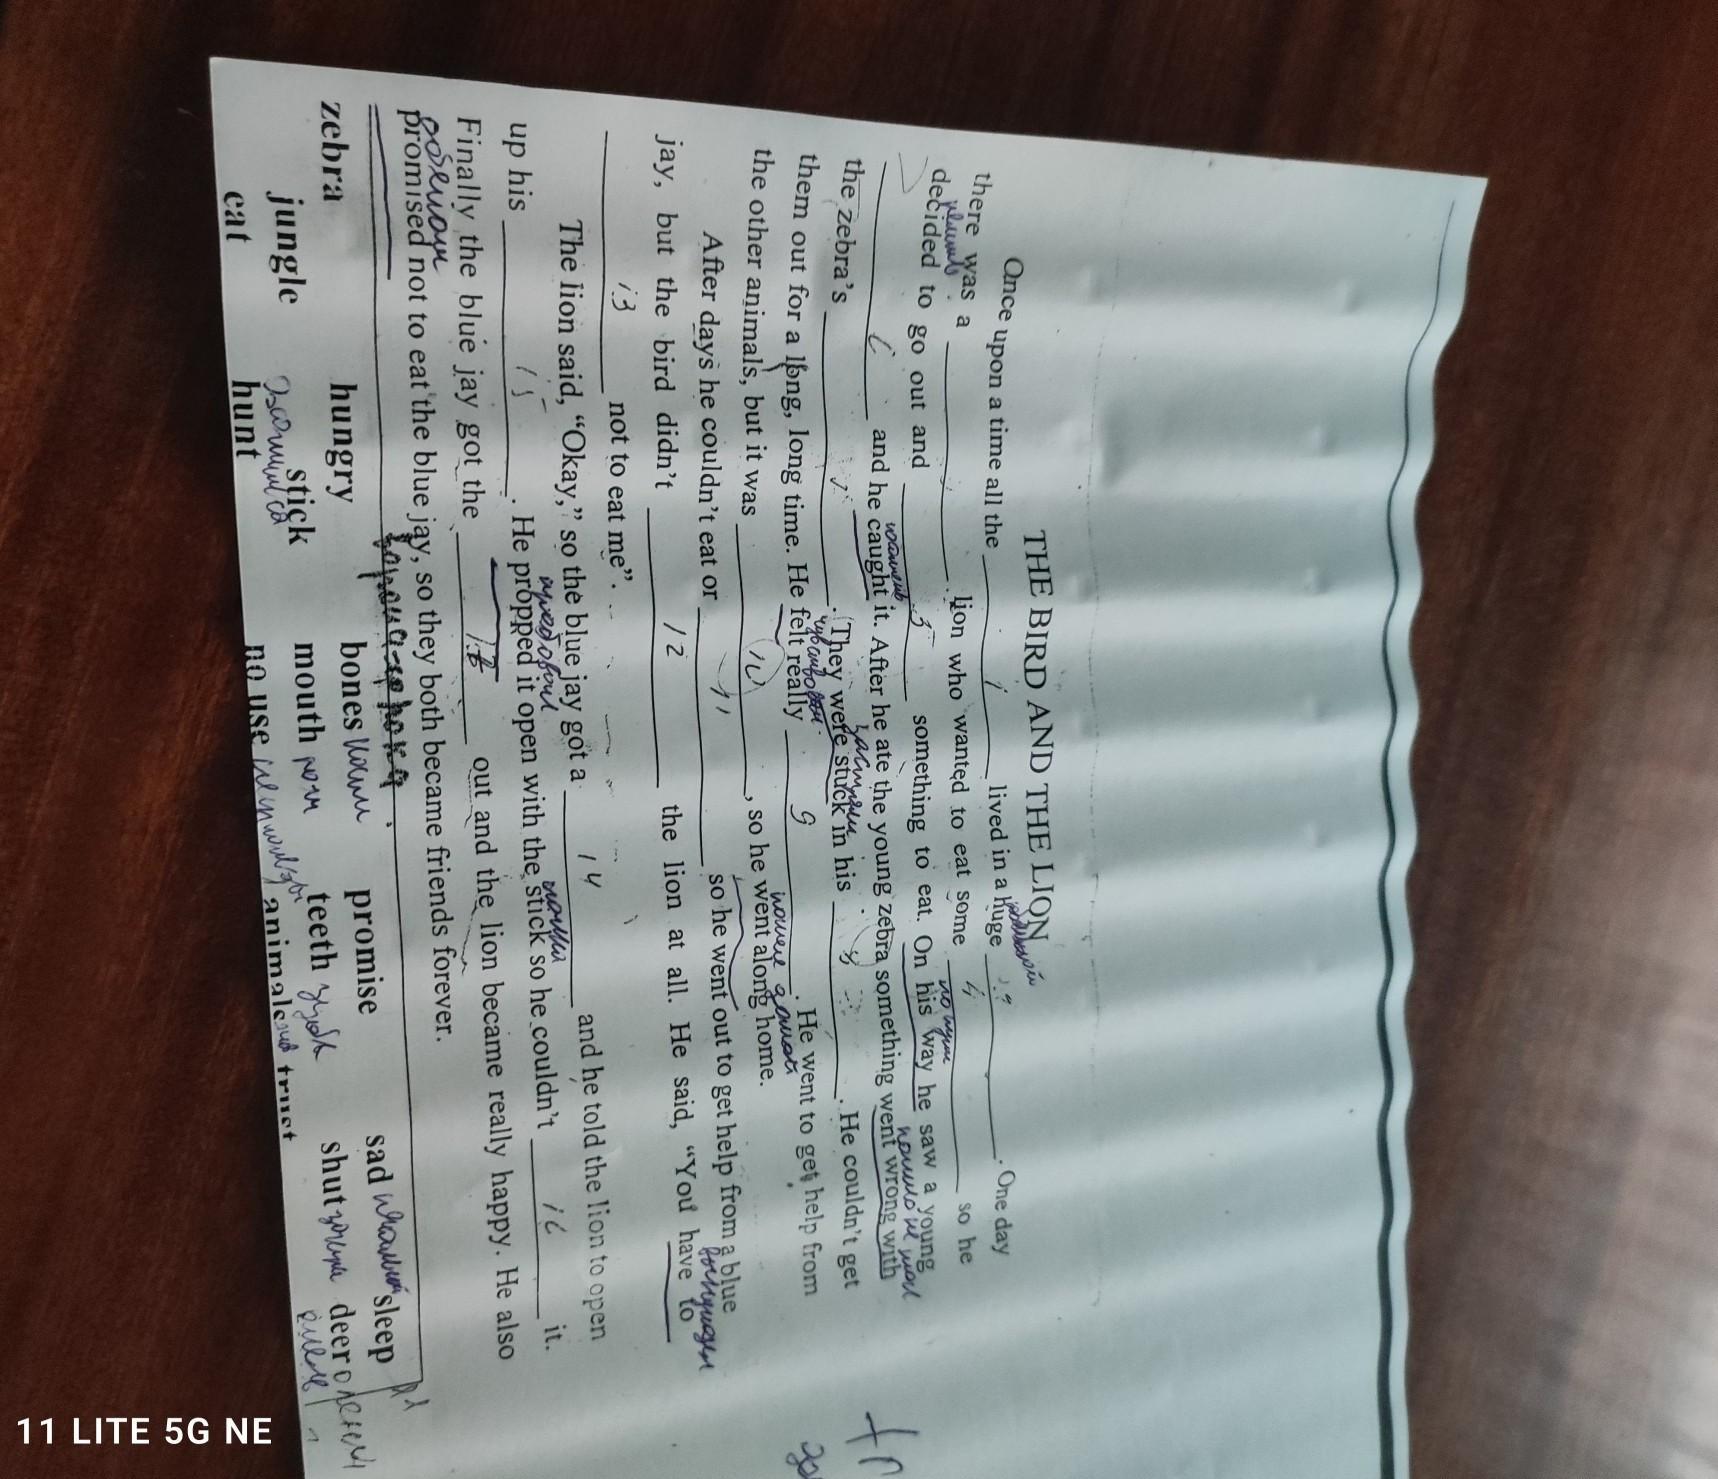 THE BIRD AND THE LION
Once upon a time all the ____ 1 ____ lived in a huge ____ . One day
there was a ____ lion who wanted to eat some ____ 4 ____ so he
decided to go out and ____ 5 ____ something to eat. On his way he saw a young
____ and he caught it. After he ate the young zebra something went wrong with
the zebra's ____ . They were stuck in his ____ . He couldn't get
them out for a long, long time. He felt really ____ 9 ____ . He went to get help from
the other animals, but it was ____ 10 ____ , so he went along home.
After days he couldn't eat or ____ 11 ____ so he went out to get help from a blue
jay, but the bird didn't ____ 12 ____ the lion at all. He said, “You have to
____ 13 ____ not to eat me”.
The lion said, “Okay,” so the blue jay got a ____ 14 ____ and he told the lion to open
up his ____ 15 ____ . He propped it open with the stick so he couldn't ____ 16 ____ it.
Finally the blue jay got the ____ out and the lion became really happy. He also
promised not to eat the blue jay, so they both became friends forever.
zebra hungry bones promise sad sleep
jungle stick mouth teeth shut deer олень
eat hunt no use animals trust
11 LITE 5G NE